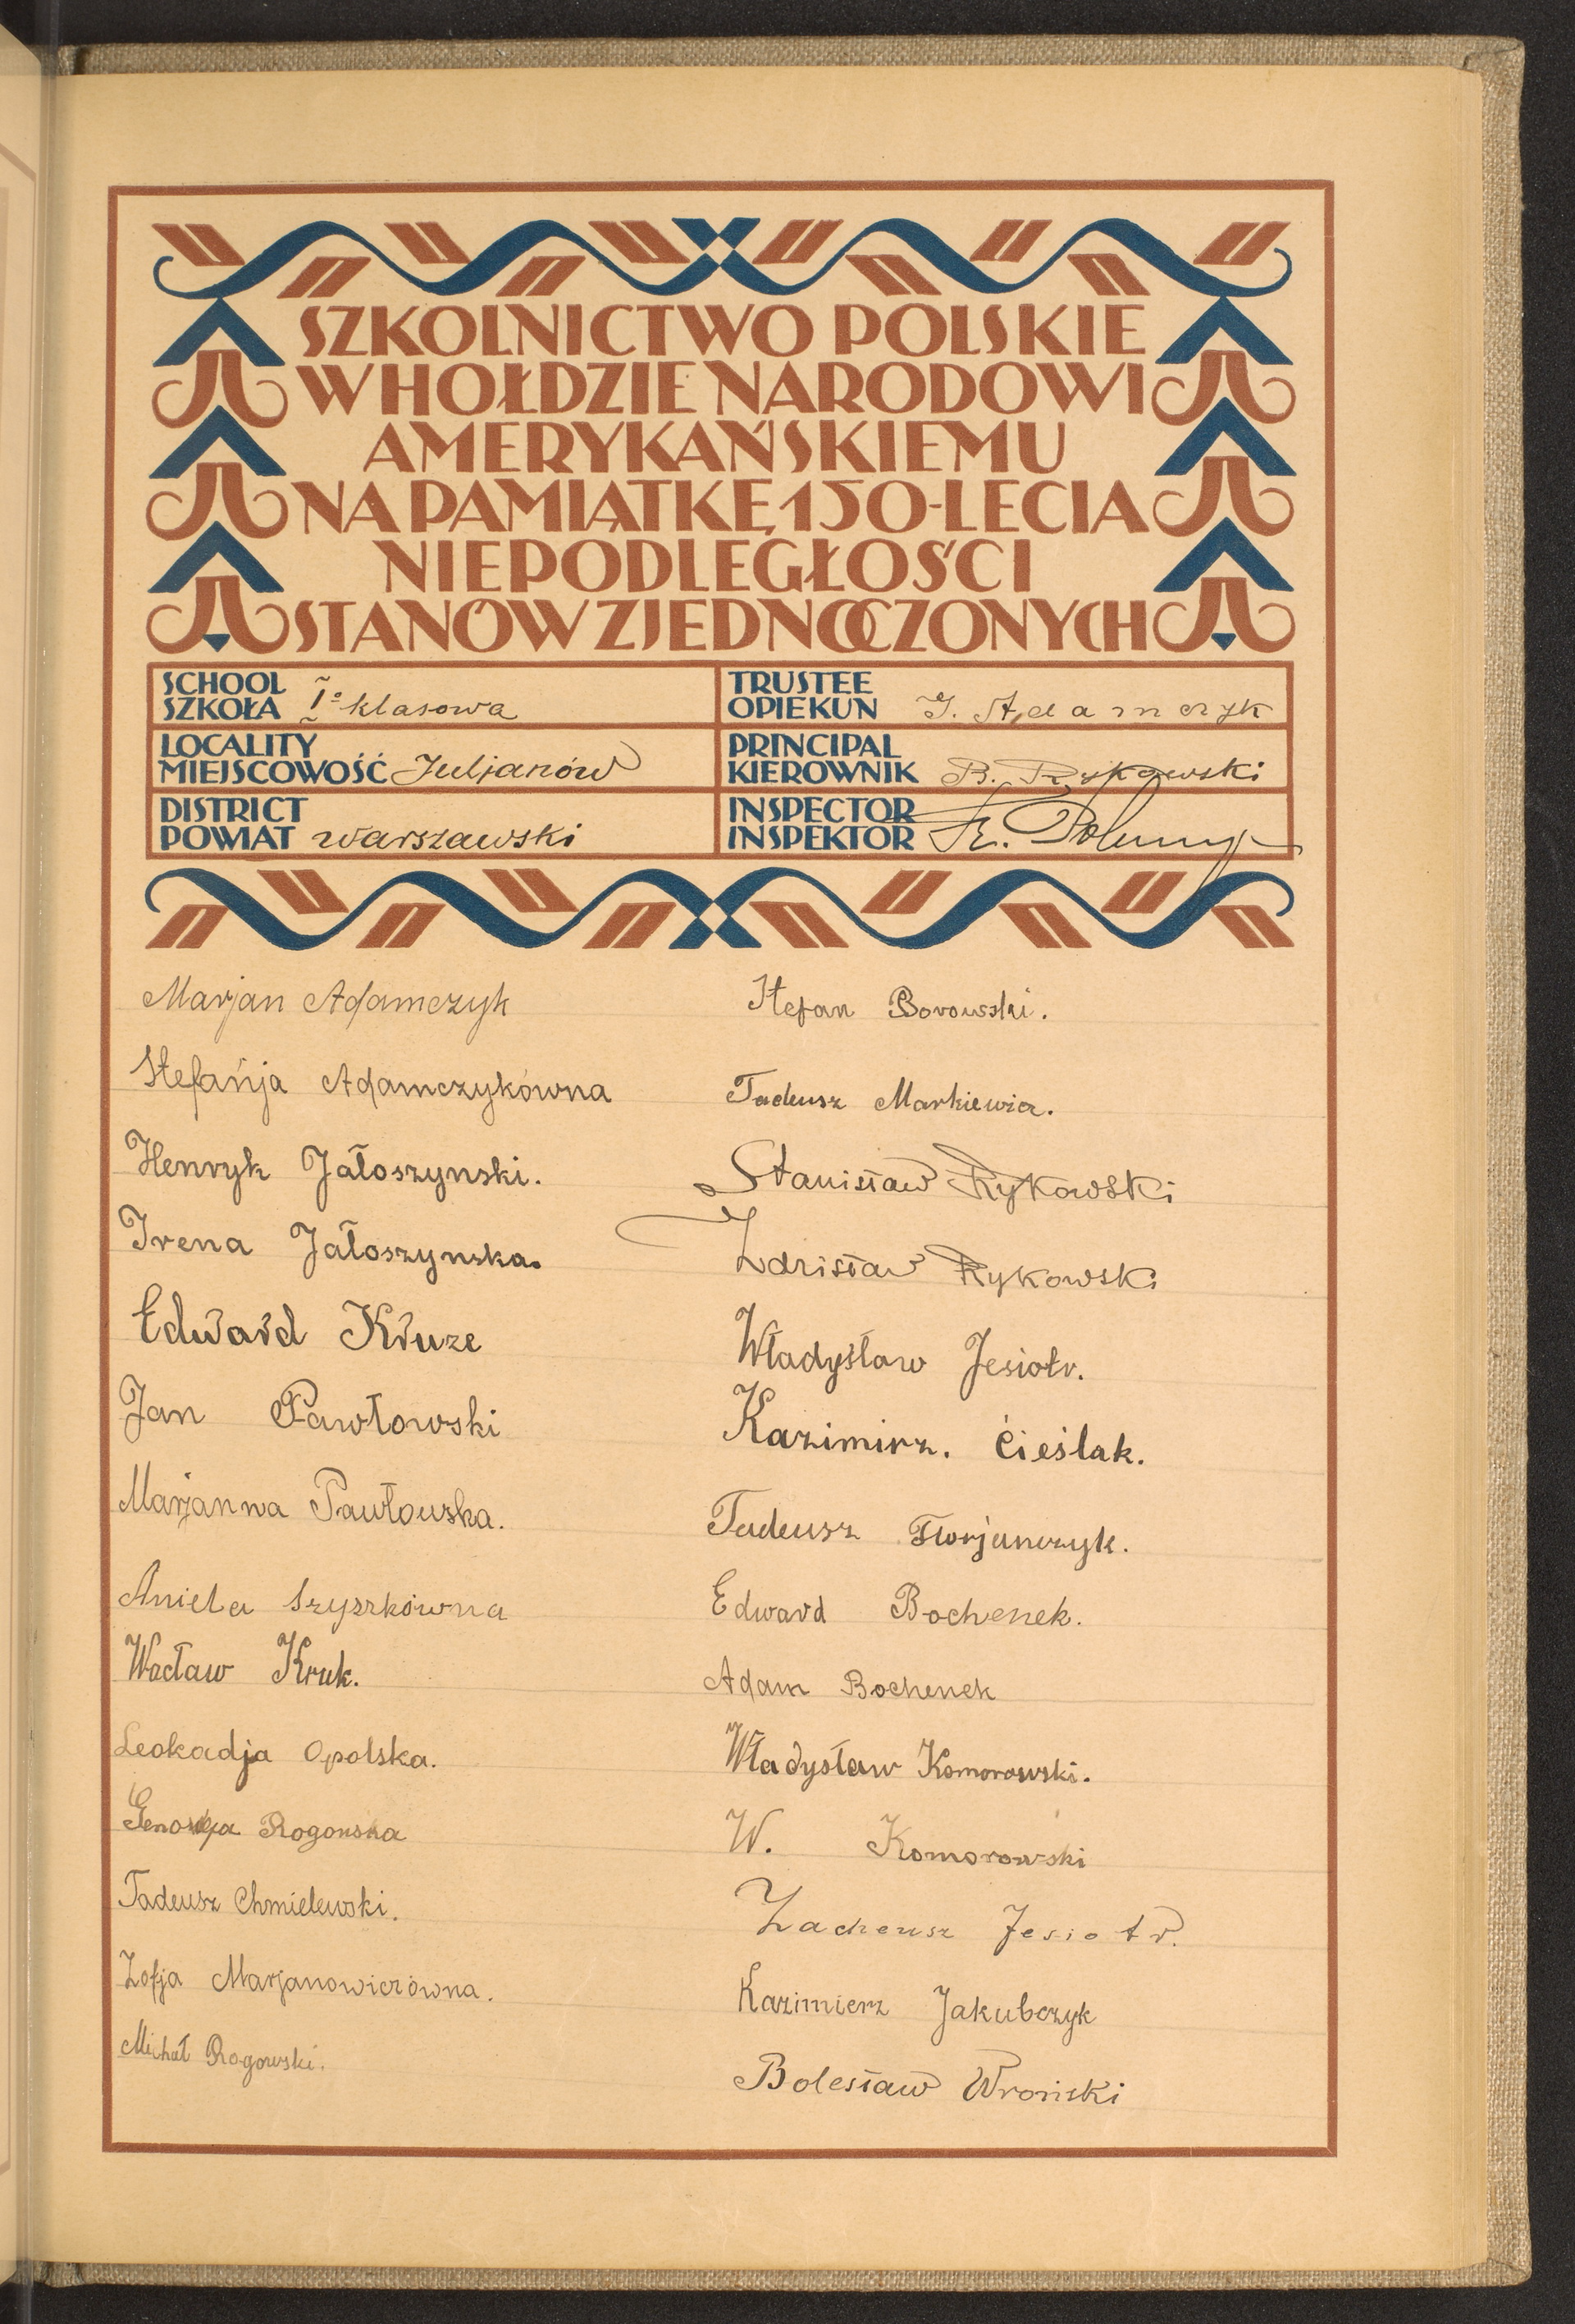 SZKOLNICTWO POLSKIE
W HOŁDZIE NARODOWI
AMERYKAŃSKIEMU
NA PAMIĄTKĘ 150-LECIA
NIEPODLEGŁOŚCI
STANÓW ZJEDNOCZONYCH
SCHOOL
SZKOŁA I° klasowa
TRUSTEE
OPIEKUN J. Adamczyk
LOCALITY
MIEJSCOWOŚĆ Juljanów
PRINCIPAL
KIEROWNIK B. Rykowski
DISTRICT
POWIAT warszawski
INSPECTOR
INSPEKTOR
Marjan Adamczyk
Stefańja Adamczykówna
Henryk Jałoszynski.
Irena Jałoszynska.
Edward Kruze
Jan Pawłowski
Marjanna Pawłowska.
Aniela Szyszkówna
Wacław Kruk.
Leokadja Opolska.
Rogowska
Tadeusz Chmielewski.
Zofja Marjanowiczówna.
Michał Rogowski.
Stefan Borowski.
Tadeusz Markiewicz.
Stanisław Rykowski
Zdzisław Rykowski
Władysław Jesiotr.
Kazimirz. Cieślak.
Tadeusz Florjanczyk.
Edward Bochenek.
Adam Bochenek
Władysław Komorowski.
W. Komorowski
Zacheusz Jesiotr.
Kazimierz Jakubczyk
Bolesław Wroński